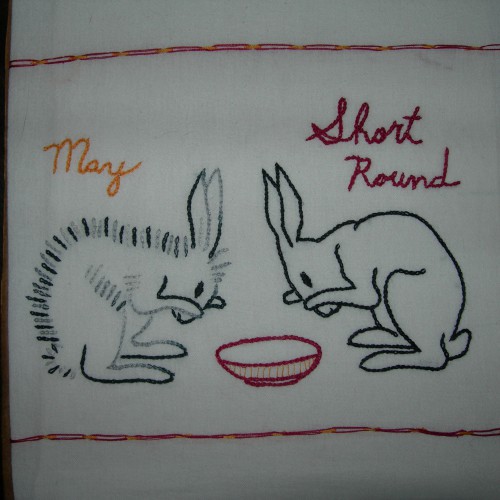 May
Short
Round